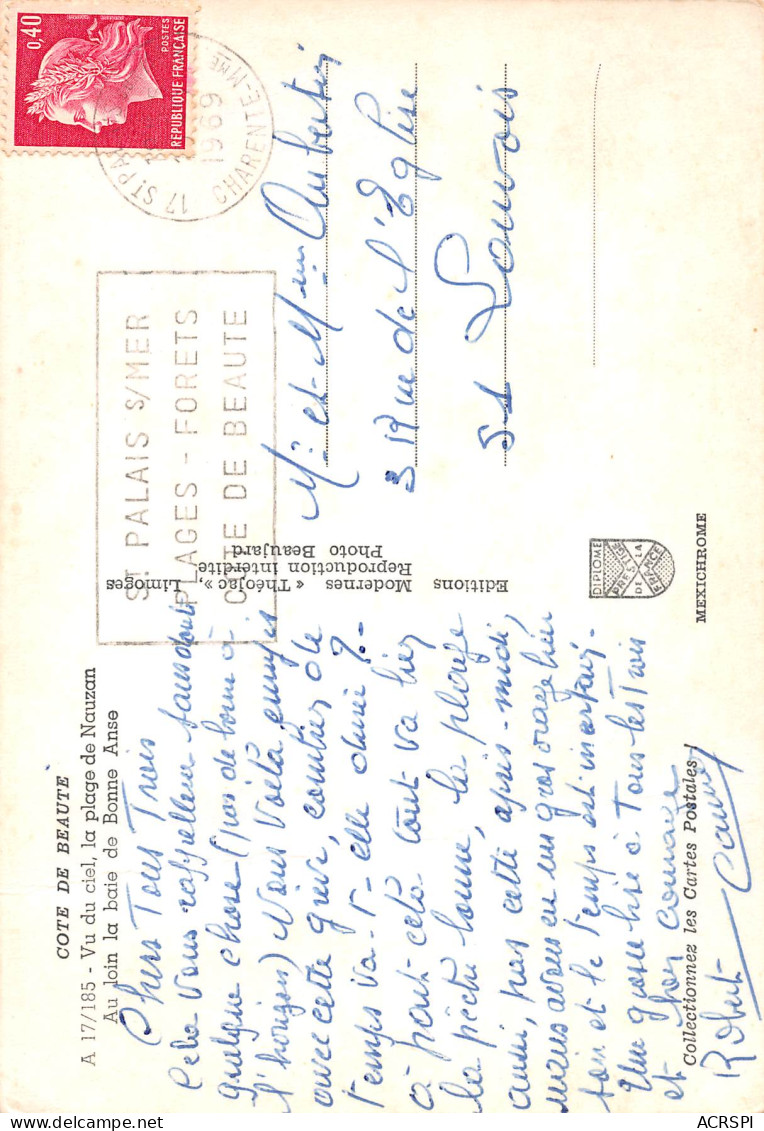 COTE DE BEAUTE
A 17/185 - Vu du ciel, la plage de Nauzan
Au loin la baie de Bonne Anse
Chers Tous Trois
Cela vous rappellera sans doute
quelque chose (pas de bonne à
l'horizon) Vous voilà ennuyés
avec cette grève, combien de
temps va-t-elle durer ? -
à part cela tout va bien
la pêche bonne, la plage
aussi, pas cette après-midi,
mais avons eu un gros orage hier
soir et le temps est incertain.
Une grosse bise à Tous les Trois
et bon courage
Robert
Collectionnez les Cartes Postales !
Editions
Modernes « Théojac », Limoges
Reproduction interdite
Photo Beaujard
DIPLOME
PRESTIGE
DE LA
FRANCE
MEXICHROME
0,40
POSTES
REPUBLIQUE FRANÇAISE
17 ST PAL
1969
CHARENTE-MME
ST PALAIS S/MER
PLAGES - FORETS
COTE DE BEAUTE
Mr et Mme Aubertin
3 Rue de l'Eglise
51 Louvois
ACRSPI